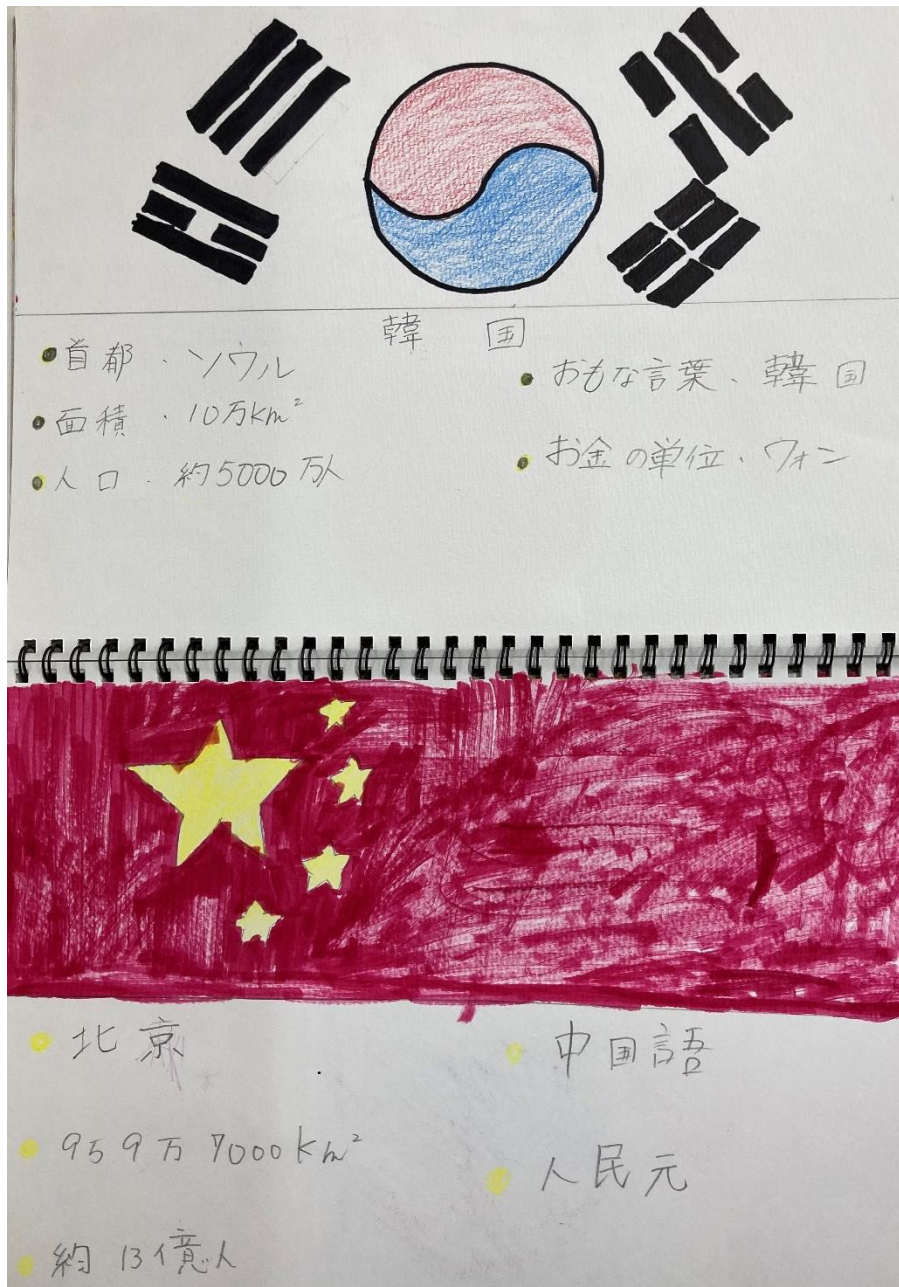 韓国
首都・ソウル
面積・10万km²
人口・約5000万人
おもな言葉・韓国
お金の単位・ウォン
北京
959万7000km²
約13億人
中国語
人民元